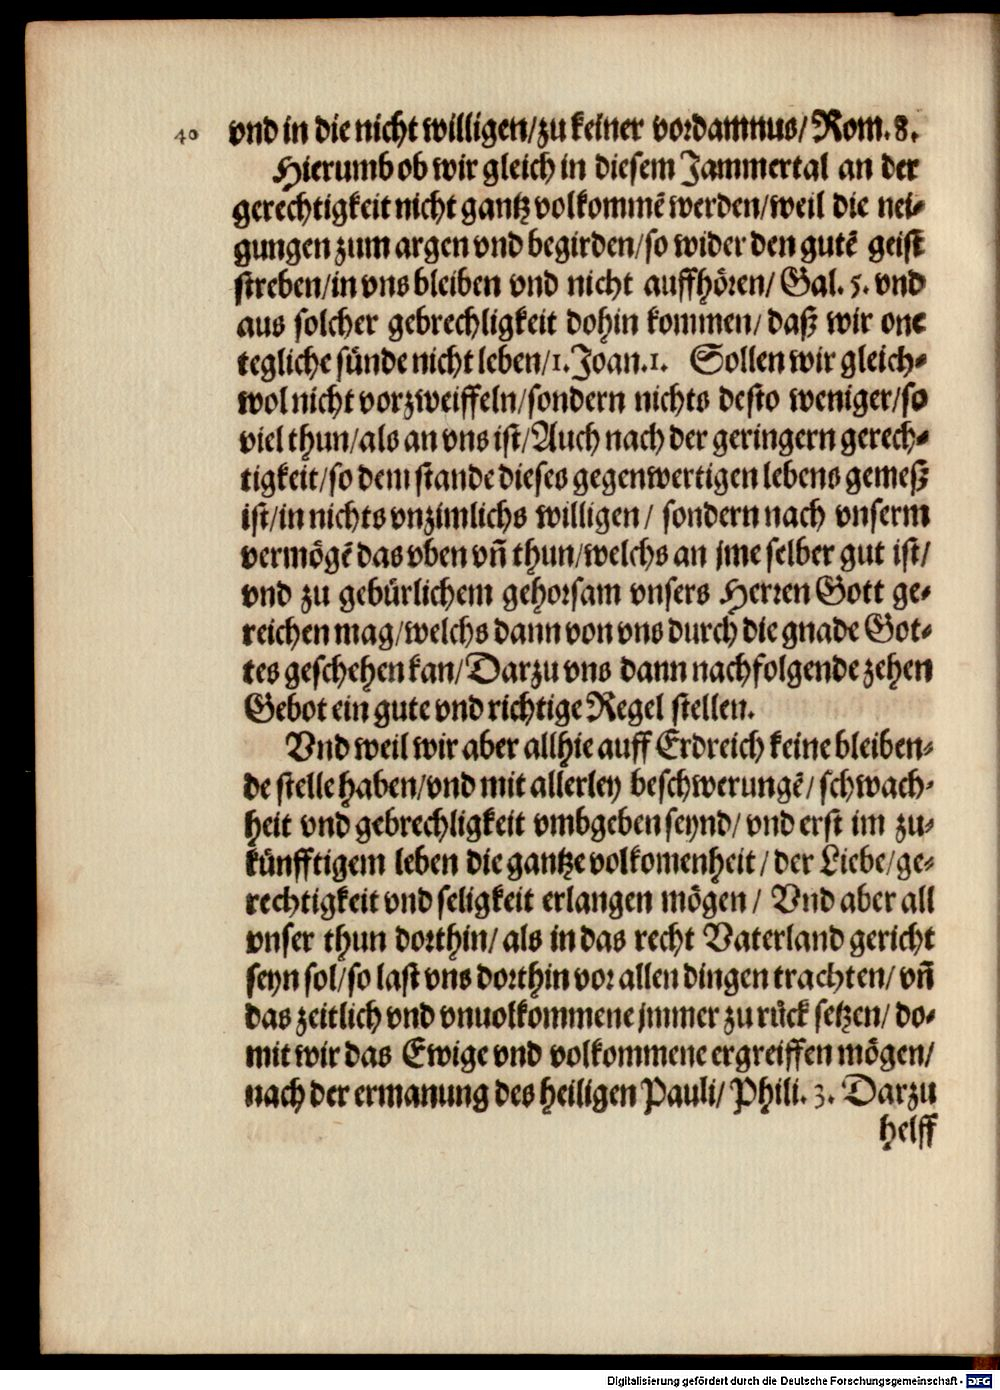 40 vnd in die nicht willigen/zu keiner vordamnus/Rom.8.
Hierumb ob wir gleich in diesem Jammertal an der
gerechtigkeit nicht gantz volkommē werden/weil die nei⸗
gungen zum argen vnd begirden/so wider den gutē geist
streben/in vns bleiben vnd nicht auffhören/ Gal. 5. vnd
aus solcher gebrechligkeit dohin kommen/ daß wir one
tegliche sünde nicht leben/1. Joan.1. Sollen wir gleich⸗
wol nicht vorzweiffeln/sondern nichts desto weniger/so
viel thun/als an vns ist/Auch nach der geringern gerech⸗
tigkeit/so dem stande dieses gegenwertigen lebens gemeß
ist/in nichts vnzimlichs willigen/ sondern nach vnserm
vermögē das vben vñ thun/welchs an jme selber gut ist/
vnd zu gebürlichem gehorsam vnsers Herren Gott ge⸗
reichen mag/welchs dann von vns durch die gnade Got⸗
tes geschehen kan/Darzu vns dann nachfolgende zehen
Gebot ein gute vnd richtige Regel stellen.
Vnd weil wir aber allhie auff Erdreich keine bleiben⸗
de stelle haben/vnd mit allerley beschwerungē/ schwach⸗
heit vnd gebrechligkeit vmbgeben seynd/ vnd erst im zu⸗
künfftigem leben die gantze volkomenheit/ der Liebe/ge⸗
rechtigkeit vnd seligkeit erlangen mögen/ Vnd aber all
vnser thun dorthin/ als in das recht Vaterland gericht
seyn sol/so last vns dorthin vor allen dingen trachten/ vñ
das zeitlich vnd vnuolkommene jmmer zu rück setzen/ do⸗
mit wir das Ewige vnd volkommene ergreiffen mögen/
nach der ermanung des heiligen Pauli/ Phili. 3. Darzu
helff
Digitalisierung gefördert durch die Deutsche Forschungsgemeinschaft - DFG